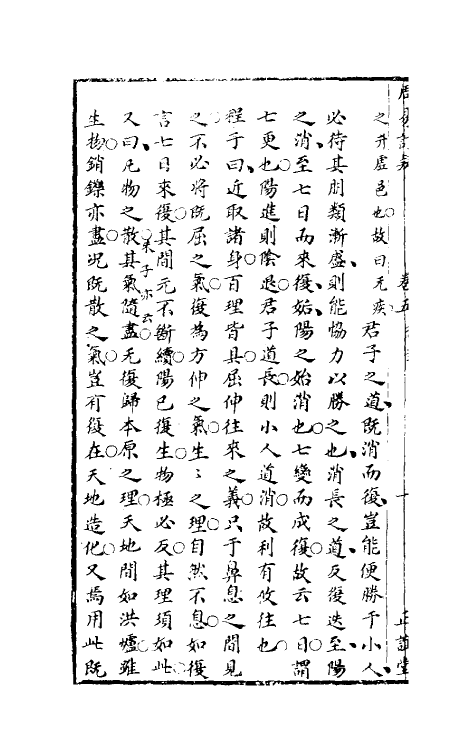 之升虛邑也故曰无疾君子之道既消而復豈能便勝于小人
必待其朋類漸盛則能恊力以勝之也消長之道反復迭至陽
之消至七日而來復姤陽之始消也七變而成復故云七日謂
七更也陽進則陰退君子道長則小人道消故利有攸往也
程子曰近取諸身百理皆具屈伸往來之義只于鼻息之間見
之不必將既屈之氣復為方伸之氣生〻之理自然不息如復
言七日來復其間元不斷續陽已復生物極必反其理須如此
又曰凡物之散其氣隨盡无復歸本原之理天地間如洪爐雖
朱子亦云
生物銷鑠亦盡況既散之氣豈有復在天地造化又焉用此既
卷五
十
正誼堂